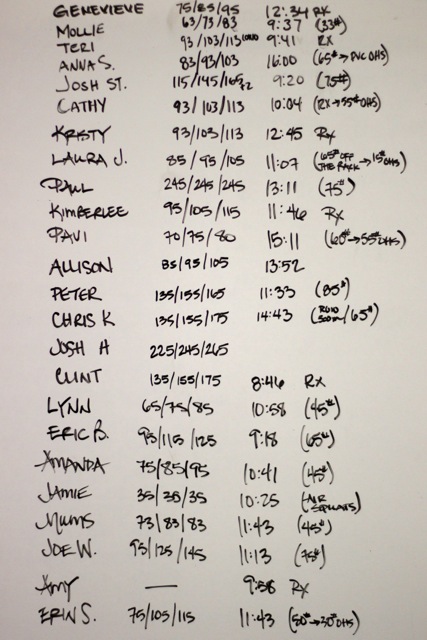 GENEVIEVE 75/85/95 12:34 RX
MOLLIE 63/73/83 9:37 (33#)
TERI 93/103/113 9:41 RX
ANNA S. 83/93/103 16:00 (65# → PVC OHS)
JOSH ST. 115/145/165 x2 9:20 (75#)
CATHY 93/103/113 10:04 (RX → 55# OHS)
KRISTY 93/103/113 12:45 RX
LAURA J. 85/95/105 11:07 (65# OFF THE RACK → 15# OHS)
PAUL 245/245/245 13:11 (75#)
KIMBERLEE 95/105/115 11:46 RX
PAVI 70/75/80 15:11 (60# → 55# OHS)
ALLISON 85/95/105 13:52
PETER 135/155/165 11:33 (85#)
CHRIS K 135/155/175 14:43 (ROW 500m/65#)
JOSH H 225/245/265
CLINT 135/155/175 8:46 RX
LYNN 65/75/85 10:58 (45#)
ERIC B. 95/115/125 9:18 (65#)
AMANDA 75/85/95 10:41 (45#)
JAMIE 35/35/35 10:25 (AIR SQUATS)
MUMS 73/83/83 11:43 (45#)
JOE W. 95/125/145 11:13 (75#)
AMY — 9:58 RX
ERIN S. 75/105/115 11:43 (50# → 30# OHS)